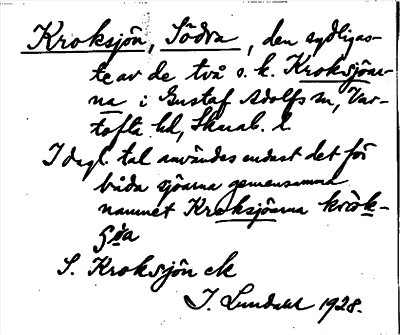 Kroksjön, Södra, den sydligas-
te av de två s. k. Kroksjöar-
na i Gustaf Adolfs sn, Var-
tofta hd, Skarab. l.
I dagl. tal användes endast det för
båda sjöarna gemensamma
namnet Kroksjöarna
S. Kroksjön ek
J. Lundahl 1928.